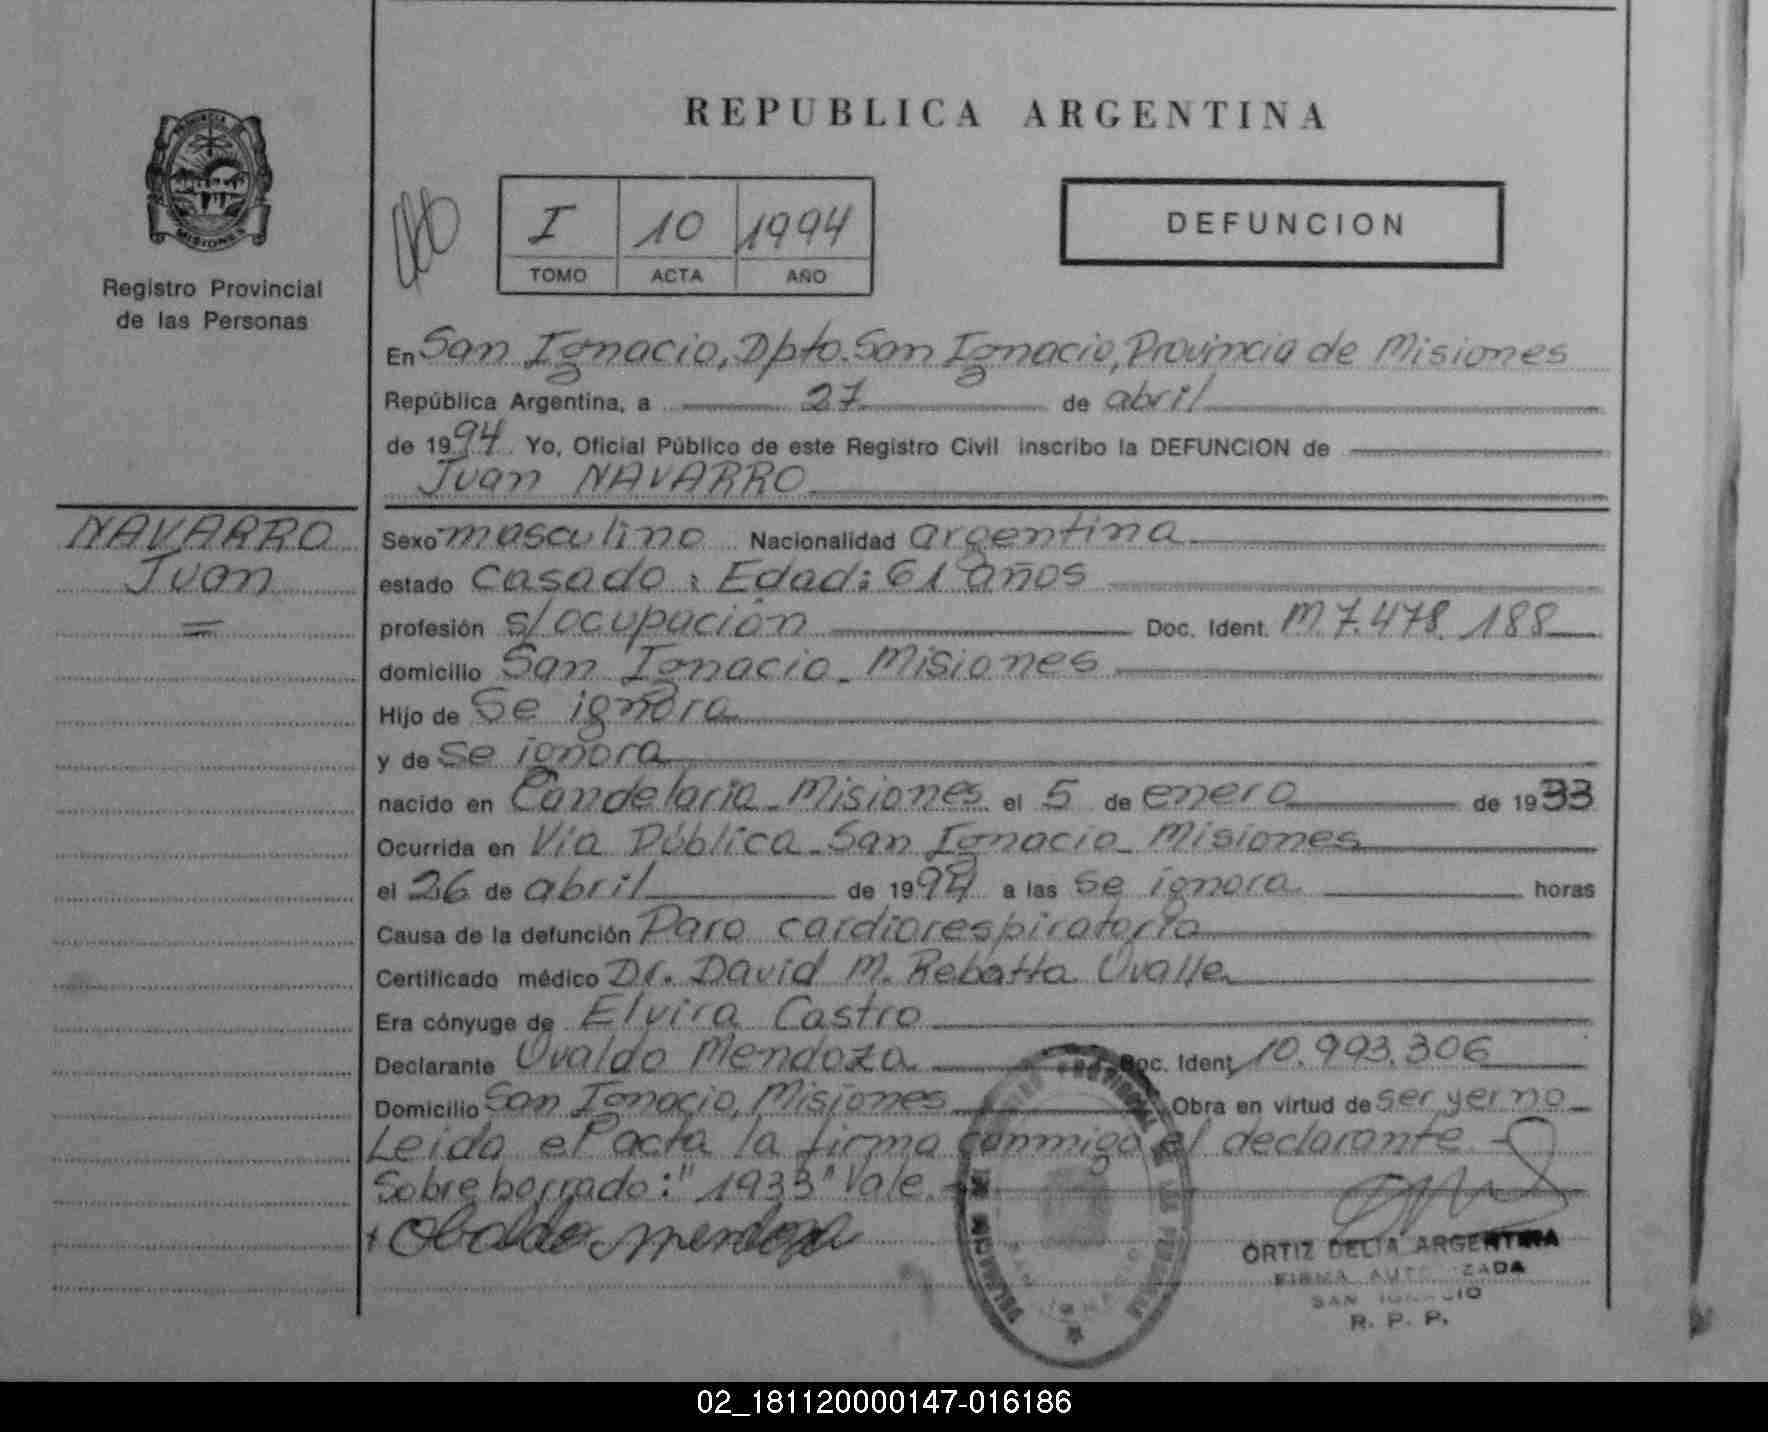 REPUBLICA ARGENTINA
PROVINCIA
MISIONES
Registro Provincial
de las Personas
I 10 1994
TOMO ACTA AÑO
DEFUNCION
En San Ignacio, Dpto. San Ignacio, Provincia de Misiones
República Argentina, a 27 de abril
de 1994 Yo, Oficial Público de este Registro Civil inscribo la DEFUNCION de
Juan NAVARRO
NAVARRO
Juan
Sexo masculino Nacionalidad argentina
estado casado : Edad: 61 años
profesión s/ocupación Doc. Ident. M.7.478.188
domicilio San Ignacio - Misiones
Hijo de Se ignora
y de se ignora
nacido en Candelaria - Misiones el 5 de enero de 1933
Ocurrida en Vía Pública - San Ignacio - Misiones
el 26 de abril de 1994 a las se ignora horas
Causa de la defunción Paro cardiorespiratorio
Certificado médico Dr. David M. Rebatta Ovalle
Era cónyuge de Elvira Castro
Declarante Ovaldo Mendoza Doc. Ident. 10.993.306
Domicilio San Ignacio, Misiones Obra en virtud de ser yerno
Leída el acta la firma conmigo el declarante
Sobre borrado: "1933" Vale.
Obaldo Mendoza
ORTIZ DELIA ARGENTINA
FIRMA AUTORIZADA
SAN IGNACIO
R. P. P.
02_181120000147-016186